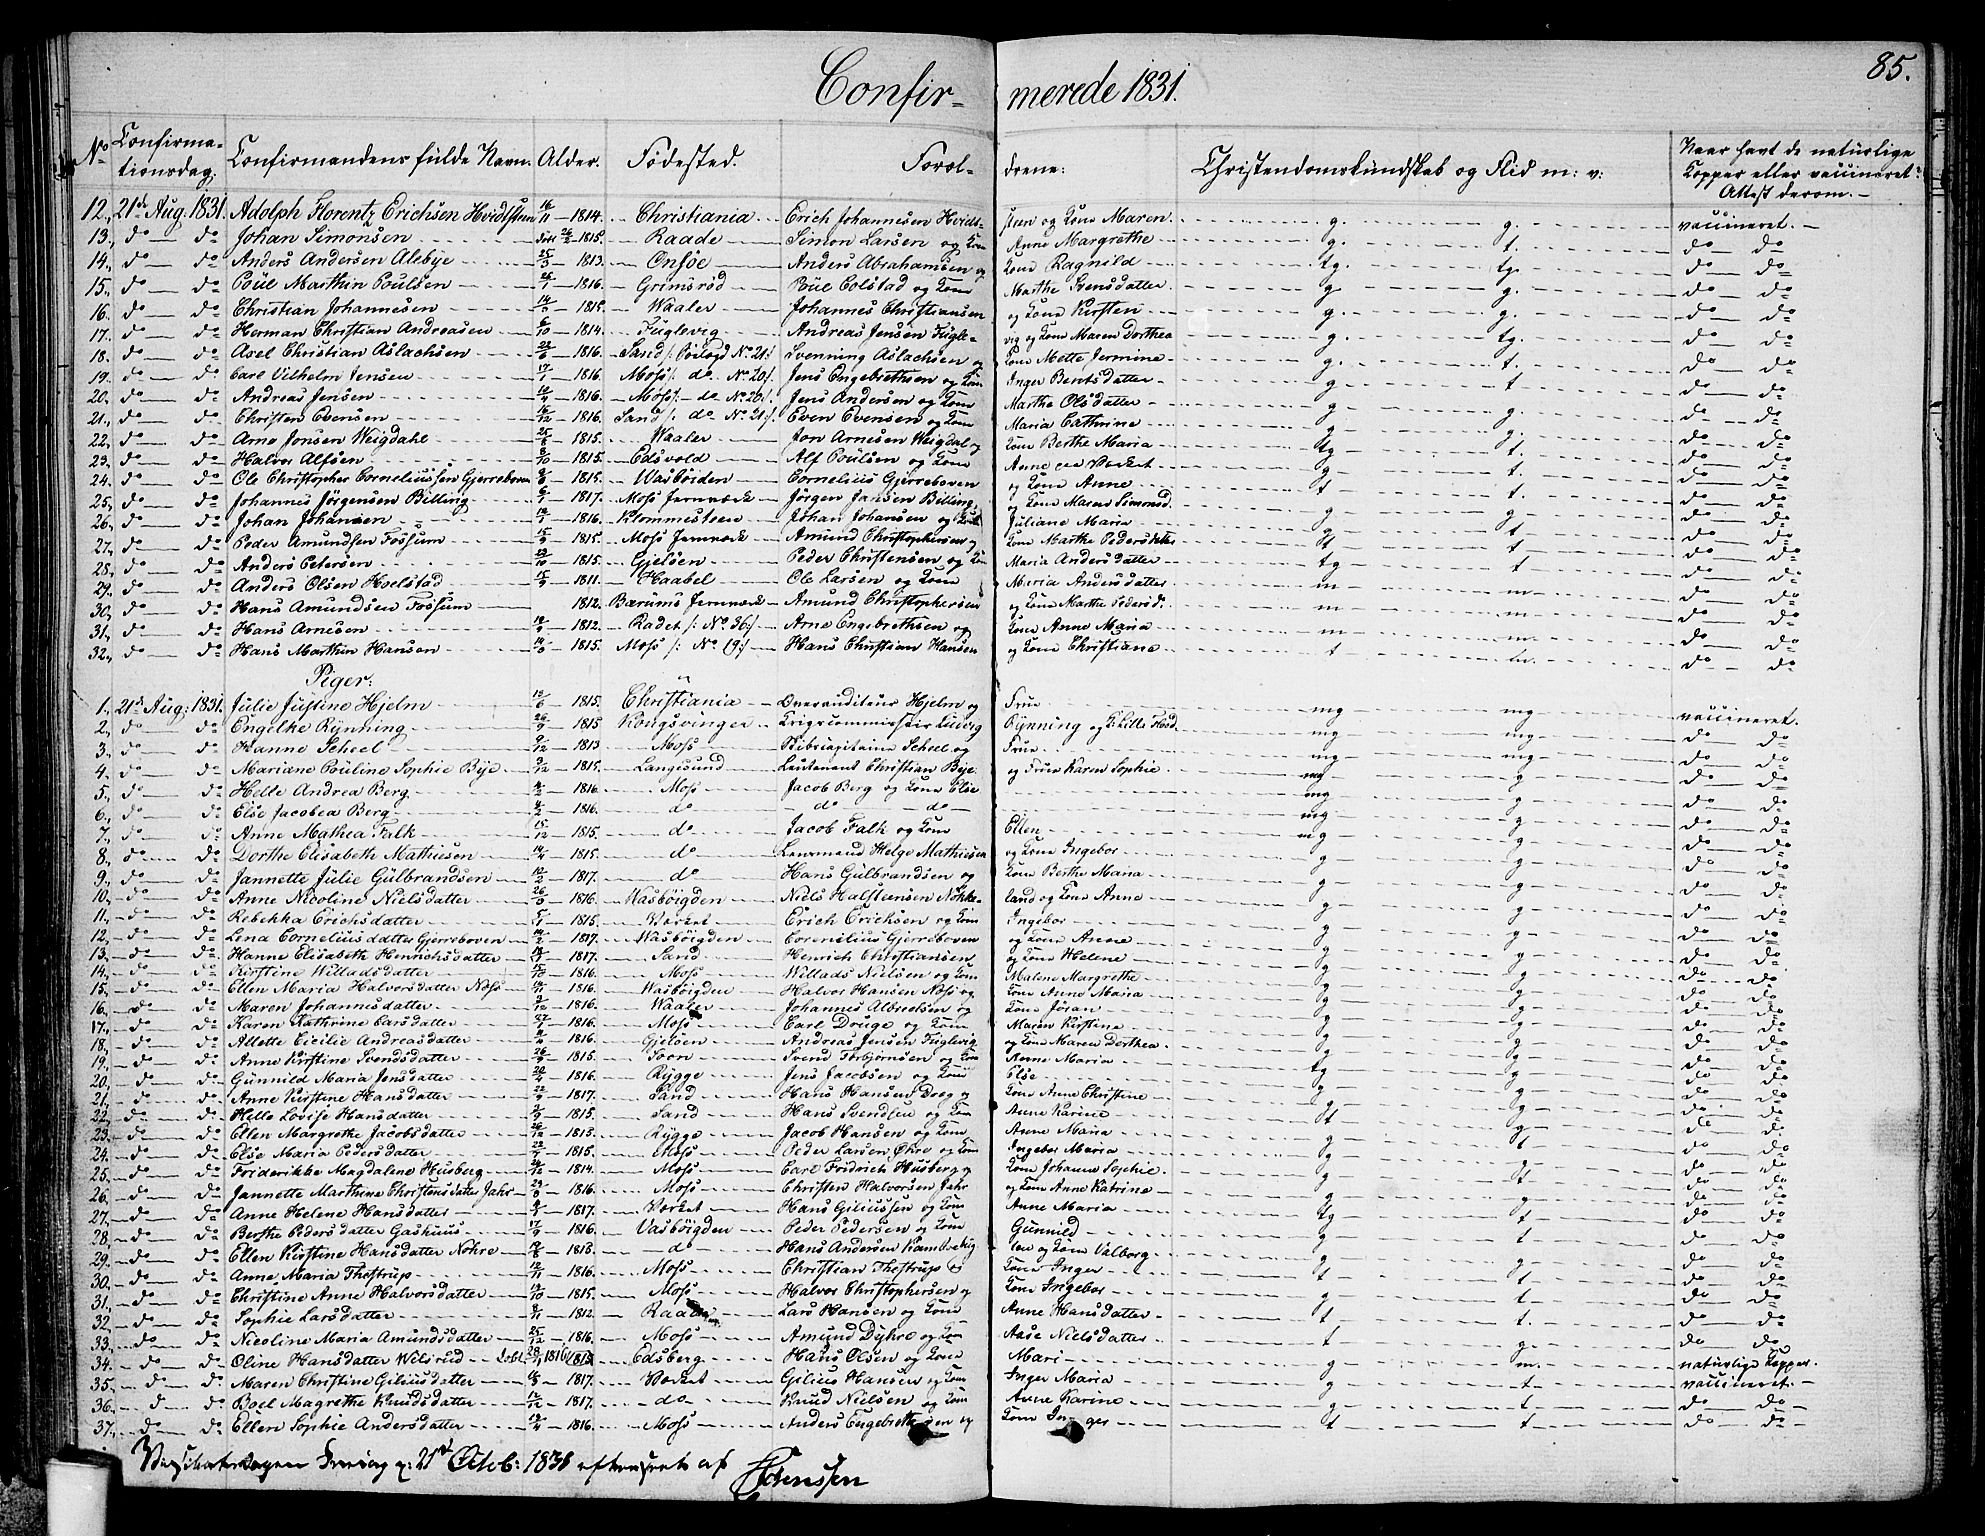 Confir= merede 1831. 85.
No Confirma-tionsdag. Confirmandens fulde Navn. Alder. Fødested. Foræl- drene: Christendomskundskab og Flid m: v: Naar havt de naturlige Kopper eller vaccineret? Attest derom.
12., 21de Aug. 1831. Adolph Florentz Erichsen Hvidsteen 16/11 1814. Christiania Erich Johannesen Hvids- steen og Kone Maren g. g. vaccineret.
13., do do Johan Simonsen døbt 26/2 1815. Raade Simon Larsen og Kone Anne Margrethe g. t. do do
14., do do Anders Andersen Alebye 25/3 1813. Onsöe Anders Abrahamsen og Kone Ragnild tg. tg. do do
15., do do Poul Marthin Poulsen 1816. Grimsrød Poul Colstad og Kone Marthe Svensdatter g. g. do do
16., do do Christian Johannesen 1815. Waaler Johannes Christiansen og Kone Kirsten g. g. do do
17., do do Herman Christian Andreasen 1814. Fuglevig Andreas Jensen Fugle- vig og Kone Maren Dorthea g. tg. do do
18., do do Axel Christian Aslachsen 22/6 1816. Sand No 21 Svenning Aslachsen og Kone Mette Jermine g. g. do do
19., do do Carl Vilhelm Jensen 17/1 1816. Moss do No 20 Jens Engebrethsen og Kone Inger Bentsdatter g. t. do do
20., do do Andreas Jensen 1816. Moss do No 20 Jens Andersen og Kone Marthe Olsdatter g. g. do do
21., do do Christen Evensen 16/12 1816. Sand do No 21 Even Evensen og Kone Maria Cathrine g. g. do do
22., do do Arne Jonsen Weigdahl 25/8 1815. Waaler Jon Arnesen Weigdal og Kone Berthe Maria tg. do do
23., do do Halvor Alfsen 8/10 1815. Edsvold Alf Poulsen og Kone Anne g. t. do do
24., do do Ole Christopher Corneliussen Gjerreboven 1815. Wasböiden Cornelius Gjerreboven og Kone Anne t t. do do
25., do do Johannes Jörgensen Billing 1817. Moss Jernværk Jörgen Jansen Billing og Kone Maren Simonsd. g. g. do do
26., do do Johan Johansen 1816. Klommesteen Johan Johansen og Kone Juliane Maria g. t. do do
27., do do Peder Amundsen Fossum 1815. Moss Jernværk Amund Christophersen og Kone Marthe Pedersdatter t t. do do
28., do do Anders Petersen 1815. Gjelöen Peder Christensen og Kone Maria Andersdatter tg t do do
29., do do Anders Olsen Hvelstad 1811. Haabel Ole Larsen og Kone Maria Andersdatter m m do do
30., do do Hans Amundsen Fossum 1812. Bærums Jernværk Amund Christophersen og Kone Marthe Pedersd. m m. do do
31., do do Hans Arnesen 1812. Radet /: No 36:/ Arne Engebrethsen og Kone Anne Maria m m. do do
32., do do Hans Marthin Hansen 1815. Moss /: No 19:/ Hans Christian Hansen og Kone Christiane t m. do do
Piger:
1., 21de Aug: 1831. Julie Justine Hjelm 1815. Christiania Overauditeur Hjelm og Frue mg mg vaccineret.
2., do do Engelke Rynning 26/9 1815 Kongsvinger Krigscommissair Ludvig Rynning og mg mg do do
3., do do Hanne Scheel 9/12 1813 Moss Scheel og Frue mg mg do do
4., do do Mariane Pouline Sophie Bye 1815. Langesund Leutenant Christian Bye og Frue Karen Sophie mg g do do
5., do do Helle Andrea Berg 4/2 1816. Moss Jacob Berg og Kone Else mg g do do
6., do do Else Jacobea Berg 4/2 1816. do do do mg g do do
7., do do Anne Mathea Falk 15/12 1815. do Jacob Falk og Kone Ellen mg g do do
8., do do Dorthe Elisabeth Mathiesen 14/4 1815. do Lensmand Helge Mathiesen og Kone Ingebor g g do do
9., do do Jannette Julie Gulbrandsen 12/2 1817. do Hans Gulbrandsen og Kone Berthe Maria g g do do
10., do do Anne Nicoline Nielsdatter 1816. Wasböigden Niels Halsteensen Nökke- land og Kone Anne g g do do
11., do do Rebekka Erichsdatter 1815. Værket Erich Erichsen og Kone Ingebor g g do do
12., do do Lena Corneliusdatter Gjerreboven 1817. Wasböigden Cornelius Gjerreboven og Kone Anne g g do do
13., do do Hanne Elisabeth Henrichsdatter 1817. Sand Henrich Christiansen og Kone Helene g g do do
14., do do Kirstine Willadsdatter 15/10 1816. Moss Willads Nielsen og Kone Malene Margrethe g g do do
15., do do Ellen Maria Halvorsdatter Næss 1816. Wasböigden Halvor Hansen Næss og Kone Anne Maria g g do do
16., do do Maren Johannesdatter 1816. Waaler Johannes Albretsen og Kone Jöran g g do do
17., do do Karen Kathrine Carsdatter 1816. Moss Carl Drage og Kone Maren Kirstine g g do do
18., do do Allette Cicilie Andreasdatter 1816. Gjelöen Andreas Jensen Fuglevig og Kone Maren Dorthea g g do do
19., do do Anne Kirstine Svendsdatter 1815. Soon Svend Torbjörnsen og Kone Anne Maria g g do do
20., do do Gunnild Maria Jensdatter 20/4 1816. Rygge Jens Jacobsen og Kone Else tg g do do
21., do do Anne Kirstine Hansdatter 1817. Sand Hans Hansen Dreg og Kone Anne Christine g g do do
22., do do Helle Lovise Hansdatter 1815. Sand Hans Svendsen og Kone Anne Karine t g do do
23., do do Ellen Margrethe Jacobsdatter 26/12 1813. Rygge Jacob Hansen og Kone Anne Maria g t do do
24., do do Else Maria Pedersdatter 1815. Moss Peder Larsen Öhre og Kone Ingebor Maria g g do do
25., do do Friderikke Magdalene Husberg 1814. Moss Carl Fridrich Husberg og Kone Johanne Sophie g t do do
26., do do Jannette Marthine Christensdatter Jahr 1816. Moss Christen Halvorsen Jahr og Kone Anne Katrine g g do do
27., do do Anne Helene Hansdatter 1817. Værket Hans Giliussen og Kone Anne Maria tg t do do
28., do do Berthe Pedersdatter Gashuus 1816. Vasböigden Peder Pedersen og Kone Gunnild g t do do
29., do do Ellen Kirstine Hansdatter Nöhre 1813. do Hans Andersen og Kone Valborg g g do do
30., do do Anne Maria Thestrup 12/11 1816. Moss Christian Thestrup og Kone Inger t g do do
31., do do Christine Anne Halvorsdatter 1815. Moss Halvor Christophersen og Kone Ingebor t t do do
32., do do Sophie Larsdatter 1812. Raade Lars Hansen og Kone Anne Hansdatter t t do do
33., do do Nicoline Maria Amundsdatter 25/12 1816. Moss Amund Dyhre og Kone Aase Nielsdatter t g do do
34., do do Oline Hansdatter Welsrud Döbt 28/1 1816 Edsberg Hans Olsen og Kone Mari g m. naturlige Kopper.
35., do do Maren Christine Giliusdatter 1817. Værket Gilius Hansen og Kone Inger Maria g t vaccineret.
36., do do Boel Magrethe Knudsdatter 1817. do Knud Nielsen og Kone Anne Karine g t do do
37., do do Ellen Sophie Andersdatter 1816. Moss Anders Engebrethsen og Kone Inger t t do do
21de Octob: 1831 efterseet af Sörenssen